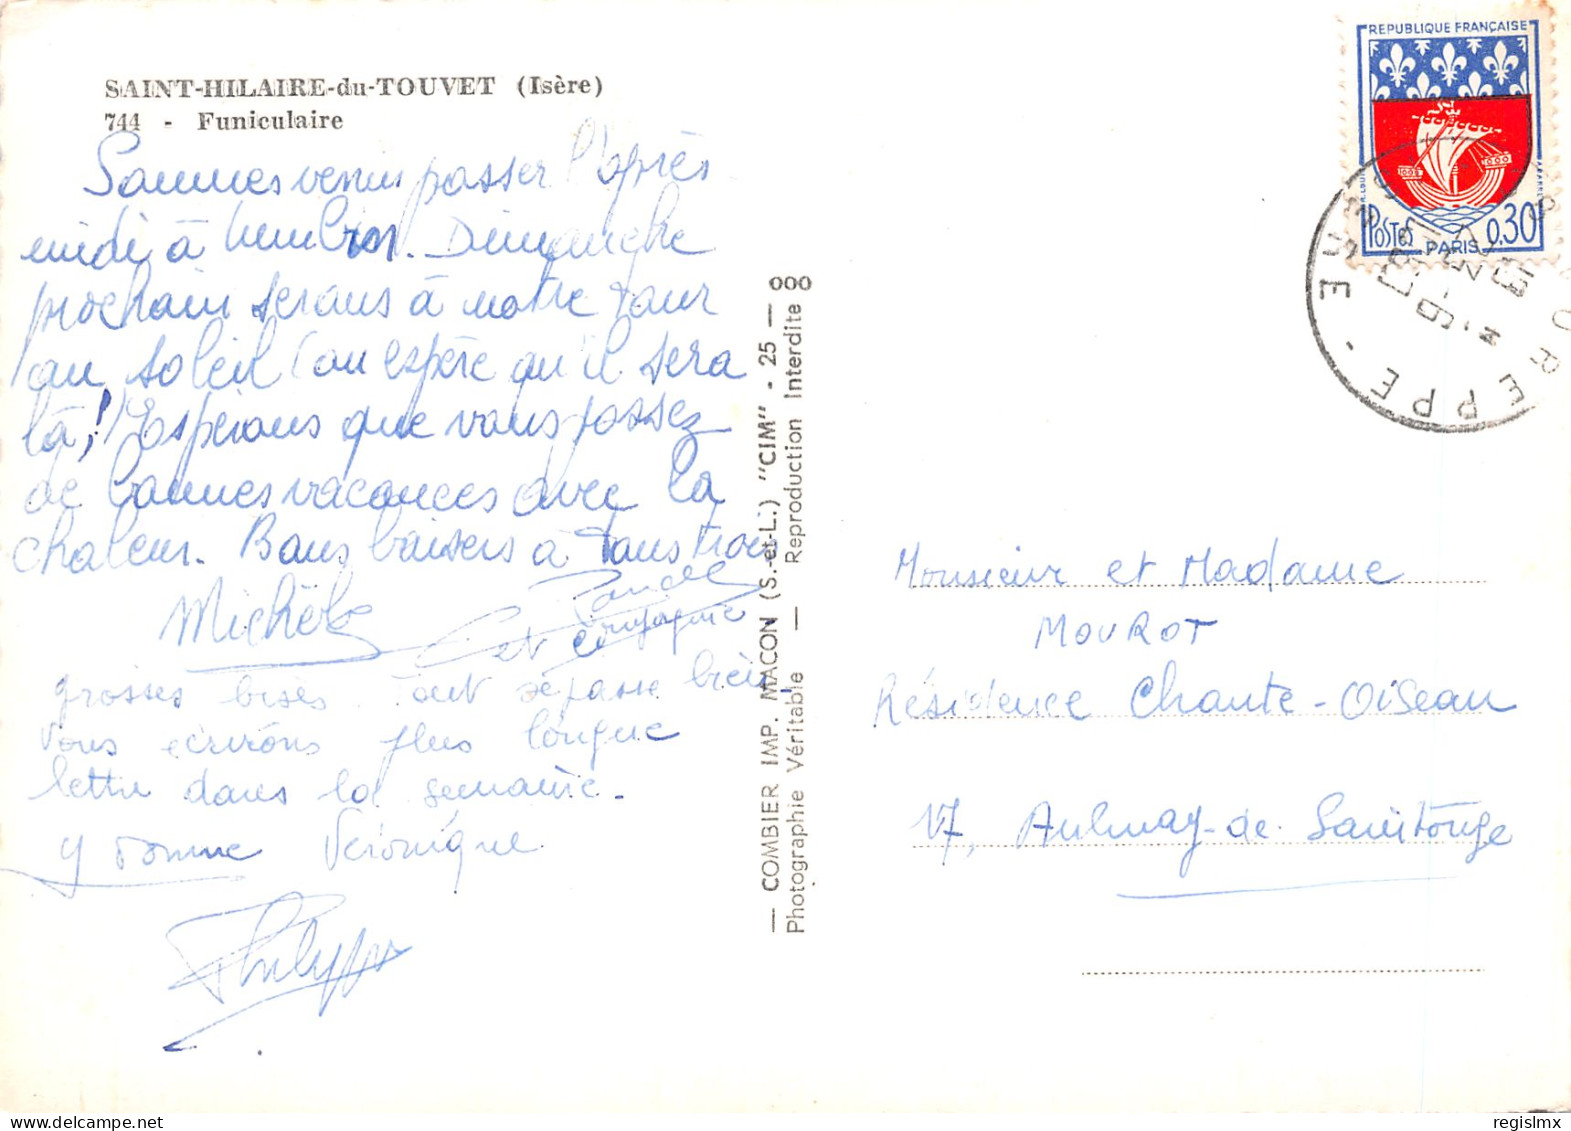 SAINT-HILAIRE-du-TOUVET (Isère)
744 - Funiculaire
Sommes venus passer l'après
midi à Lumbin. Dimanche
prochain serons à notre tour
au soleil (on espère qu'il sera
là)! Espérons que vous passez
de bonnes vacances avec la
chaleur. Bons baisers à tous trois
Michèle
et compagnie
grosses bises. Tout se passe bien.
Vous écrirons plus longue
lettre dans la semaine.
Yvonne Véronique
Philippe
— COMBIER IMP. MACON (S.-et-L.) "CIM" - 25 — 000
Photographie Véritable — Reproduction Interdite
REPUBLIQUE FRANÇAISE
POSTES PARIS 0,30
VOREPPE - ISERE
Monsieur et Madame
MOUROT
Résidence Chante-Oiseau
17, Aulnay-de-Saintonge
regislmx